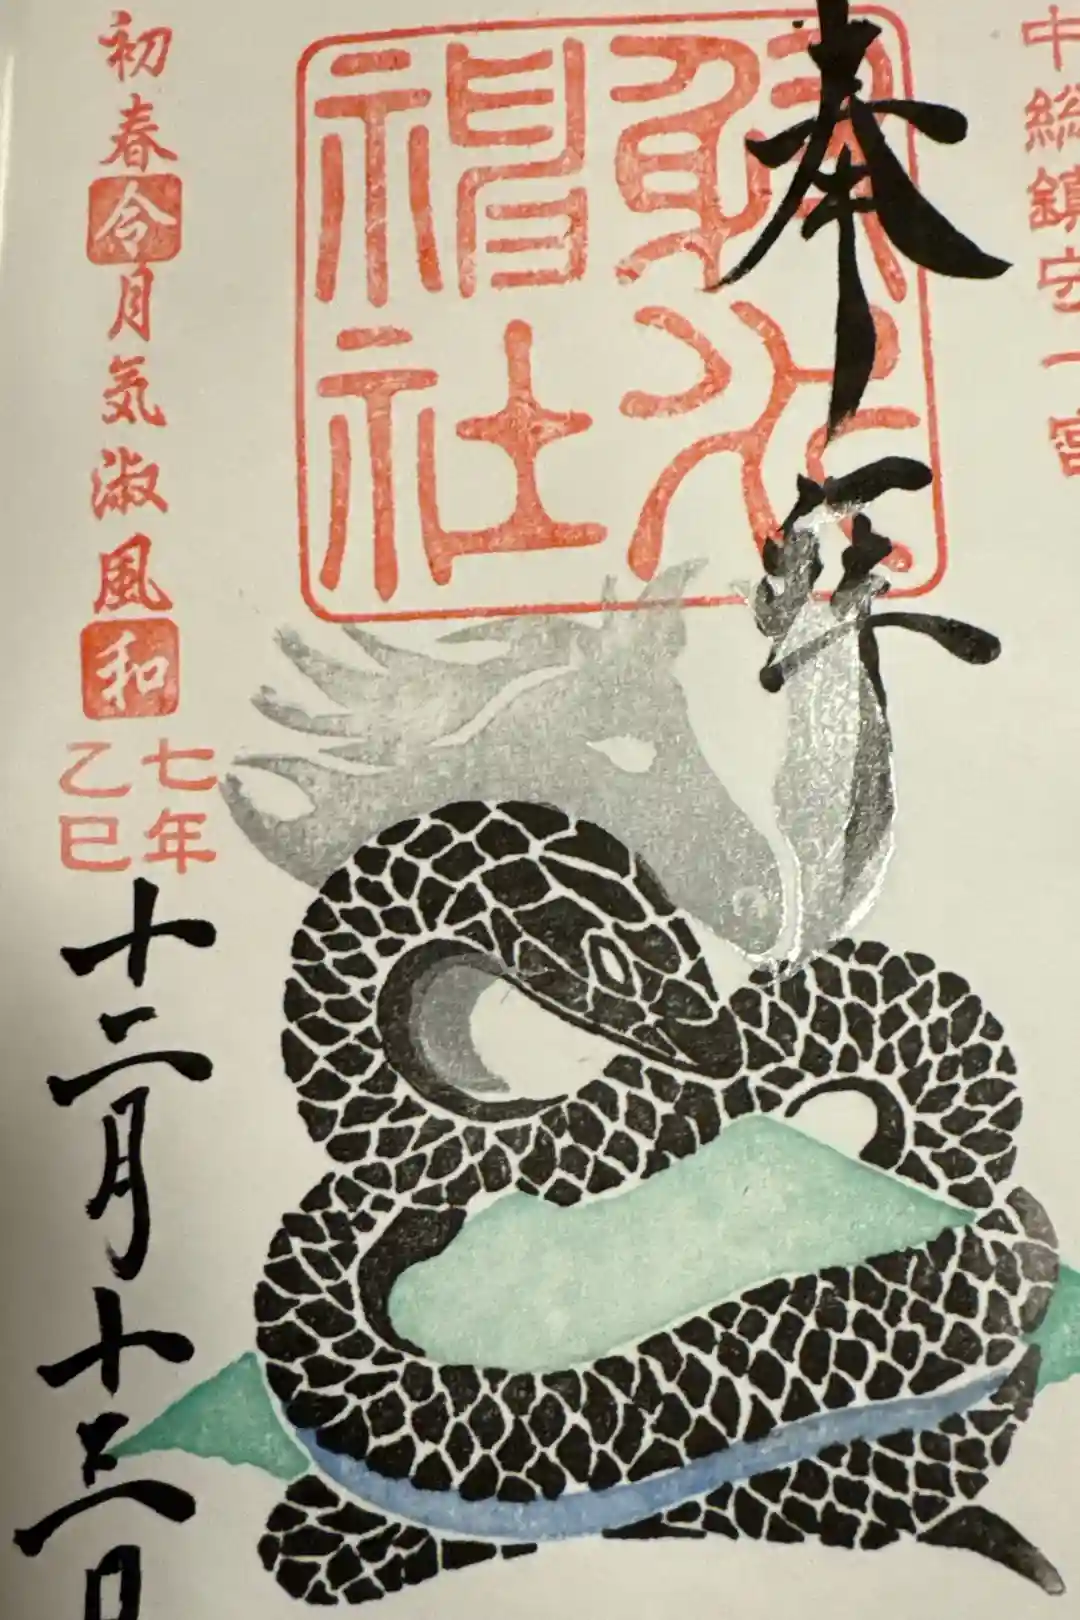 中総鎮守一宮
奉拝
神社
初春令月気淑風和
七年
乙巳
十二月十三日